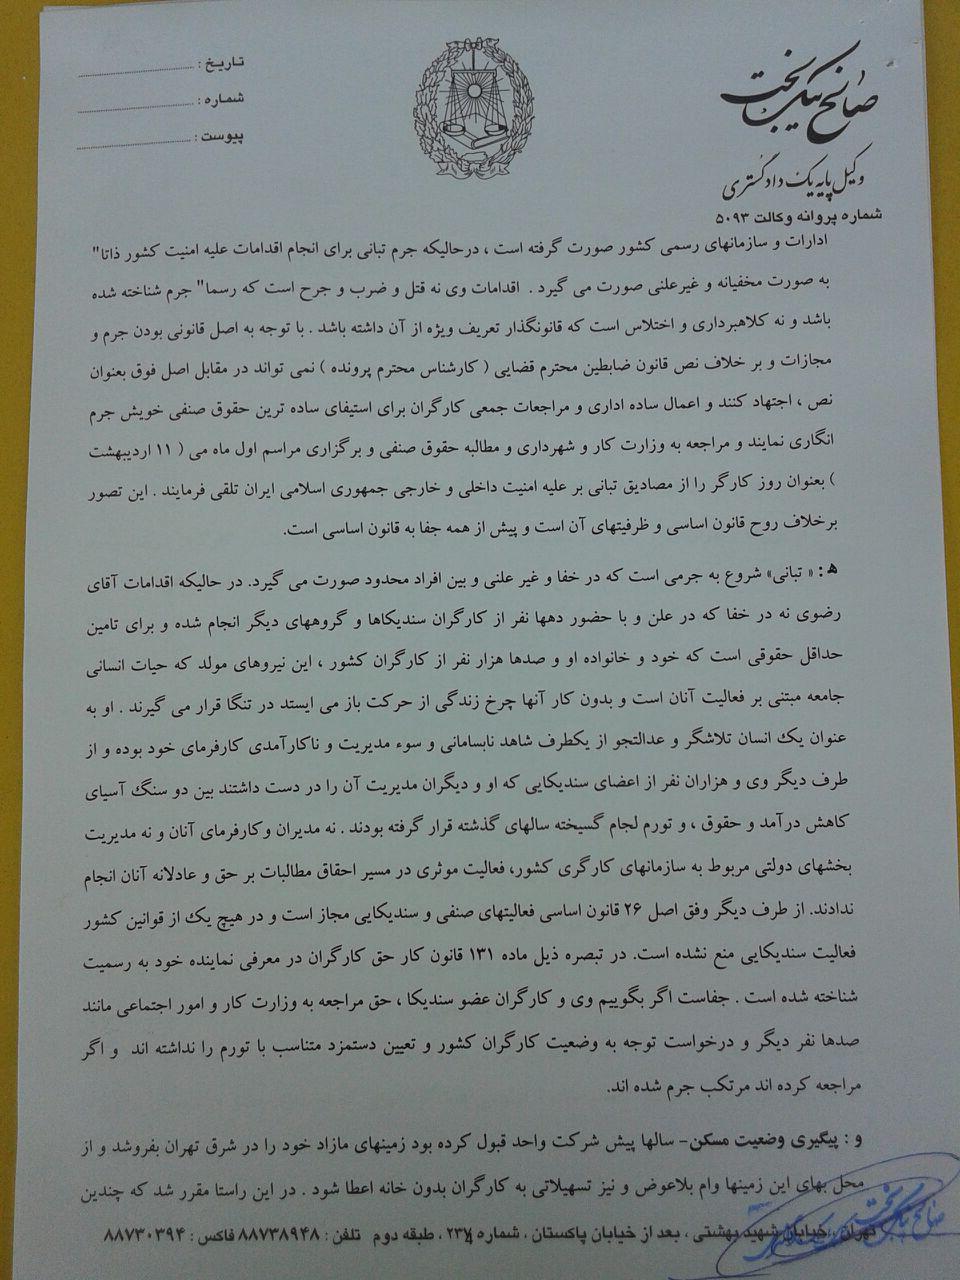 صالح نیکبخت
وکیل پایه یک دادگستری
شماره پروانه وکالت ۵۰۹۳
تاریخ :
شماره :
پیوست :
ادارات و سازمانهای رسمی کشور صورت گرفته است ، درحالیکه جرم تبانی برای انجام اقدامات علیه امنیت کشور ذاتا"
به صورت مخفیانه و غیرعلنی صورت می گیرد . اقدامات وی نه قتل و ضرب و جرح است که رسما" جرم شناخته شده
باشد و نه کلاهبرداری و اختلاس است که قانونگذار تعریف ویژه از آن داشته باشد . با توجه به اصل قانونی بودن جرم و
مجازات و بر خلاف نص قانون ضابطین محترم قضایی ( کارشناس محترم پرونده ) نمی تواند در مقابل اصل فوق بعنوان
نص ، اجتهاد کنند و اعمال ساده اداری و مراجعات جمعی کارگران برای استیفای ساده ترین حقوق صنفی خویش جرم
انگاری نمایند و مراجعه به وزارت کار و شهرداری و مطالبه حقوق صنفی و برگزاری مراسم اول ماه می ( ۱۱ اردیبهشت
) بعنوان روز کارگر را از مصادیق تبانی بر علیه امنیت داخلی و خارجی جمهوری اسلامی ایران تلقی فرمایند . این تصور
برخلاف روح قانون اساسی و ظرفیتهای آن است و پیش از همه جفا به قانون اساسی است.
ه : « تبانی» شروع به جرمی است که در خفا و غیر علنی و بین افراد محدود صورت می گیرد. در حالیکه اقدامات آقای
رضوی نه در خفا که در علن و با حضور دهها نفر از کارگران سندیکاها و گروههای دیگر انجام شده و برای تامین
حداقل حقوقی است که خود و خانواده او و صدها هزار نفر از کارگران کشور ، این نیروهای مولد که حیات انسانی
جامعه مبتنی بر فعالیت آنان است و بدون کار آنها چرخ زندگی از حرکت باز می ایستد در تنگا قرار می گیرند . او به
عنوان یک انسان تلاشگر و عدالتجو از یکطرف شاهد نابسامانی و سوء مدیریت و ناکارآمدی کارفرمای خود بوده و از
طرف دیگر وی و هزاران نفر از اعضای سندیکایی که او و دیگران مدیریت آن را در دست داشتند بین دو سنگ آسیای
کاهش درآمد و حقوق ، و تورم لجام گسیخته سالهای گذشته قرار گرفته بودند . نه مدیران وکارفرمای آنان و نه مدیریت
بخشهای دولتی مربوط به سازمانهای کارگری کشور، فعالیت موثری در مسیر احقاق مطالبات بر حق و عادلانه آنان انجام
ندادند. از طرف دیگر وفق اصل ۲۶ قانون اساسی فعالیتهای صنفی و سندیکایی مجاز است و در هیچ یک از قوانین کشور
فعالیت سندیکایی منع نشده است. در تبصره ذیل ماده ۱۳۱ قانون کار حق کارگران در معرفی نماینده خود به رسمیت
شناخته شده است . جفاست اگر بگوییم وی و کارگران عضو سندیکا ، حق مراجعه به وزارت کار و امور اجتماعی مانند
صدها نفر دیگر و درخواست توجه به وضعیت کارگران کشور و تعیین دستمزد متناسب با تورم را نداشته اند و اگر
مراجعه کرده اند مرتکب جرم شده اند.
و : پیگیری وضعیت مسکن- سالها پیش شرکت واحد قبول کرده بود زمینهای مازاد خود را در شرق تهران بفروشد و از
محل بهای این زمینها وام بلاعوض و نیز تسهیلاتی به کارگران بدون خانه اعطا شود . در این راستا مقرر شد که چندین
تهران ، خیابان شهید بهشتی ، بعد از خیابان پاکستان ، شماره ، طبقه دوم تلفن : ۸۸۷۳۸۹۴۸ فاکس : ۸۸۷۳۰۳۹۴
صالح نیکبخت